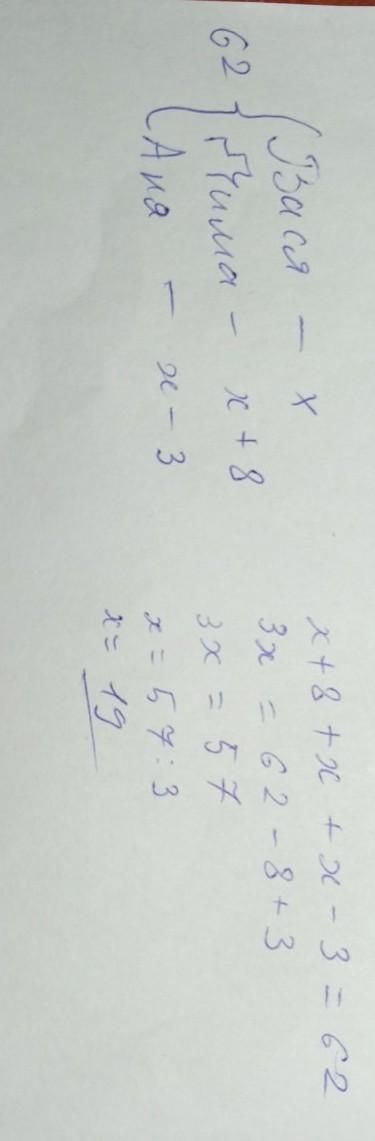 62
Вася – x
Дима – x + 8
Аня – x – 3
x + 8 + x + x – 3 = 62
3x = 62 – 8 + 3
3x = 57
x = 57 : 3
x = 19